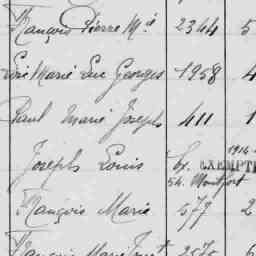 François Pierre M.ie 2344 5
Marie Luc Georges 1958 4
Paul Marie Joseph 411 1
Joseph Louis Ex. 1914 EXEMPT
54. Montfort
François Marie 577 2
François Marie